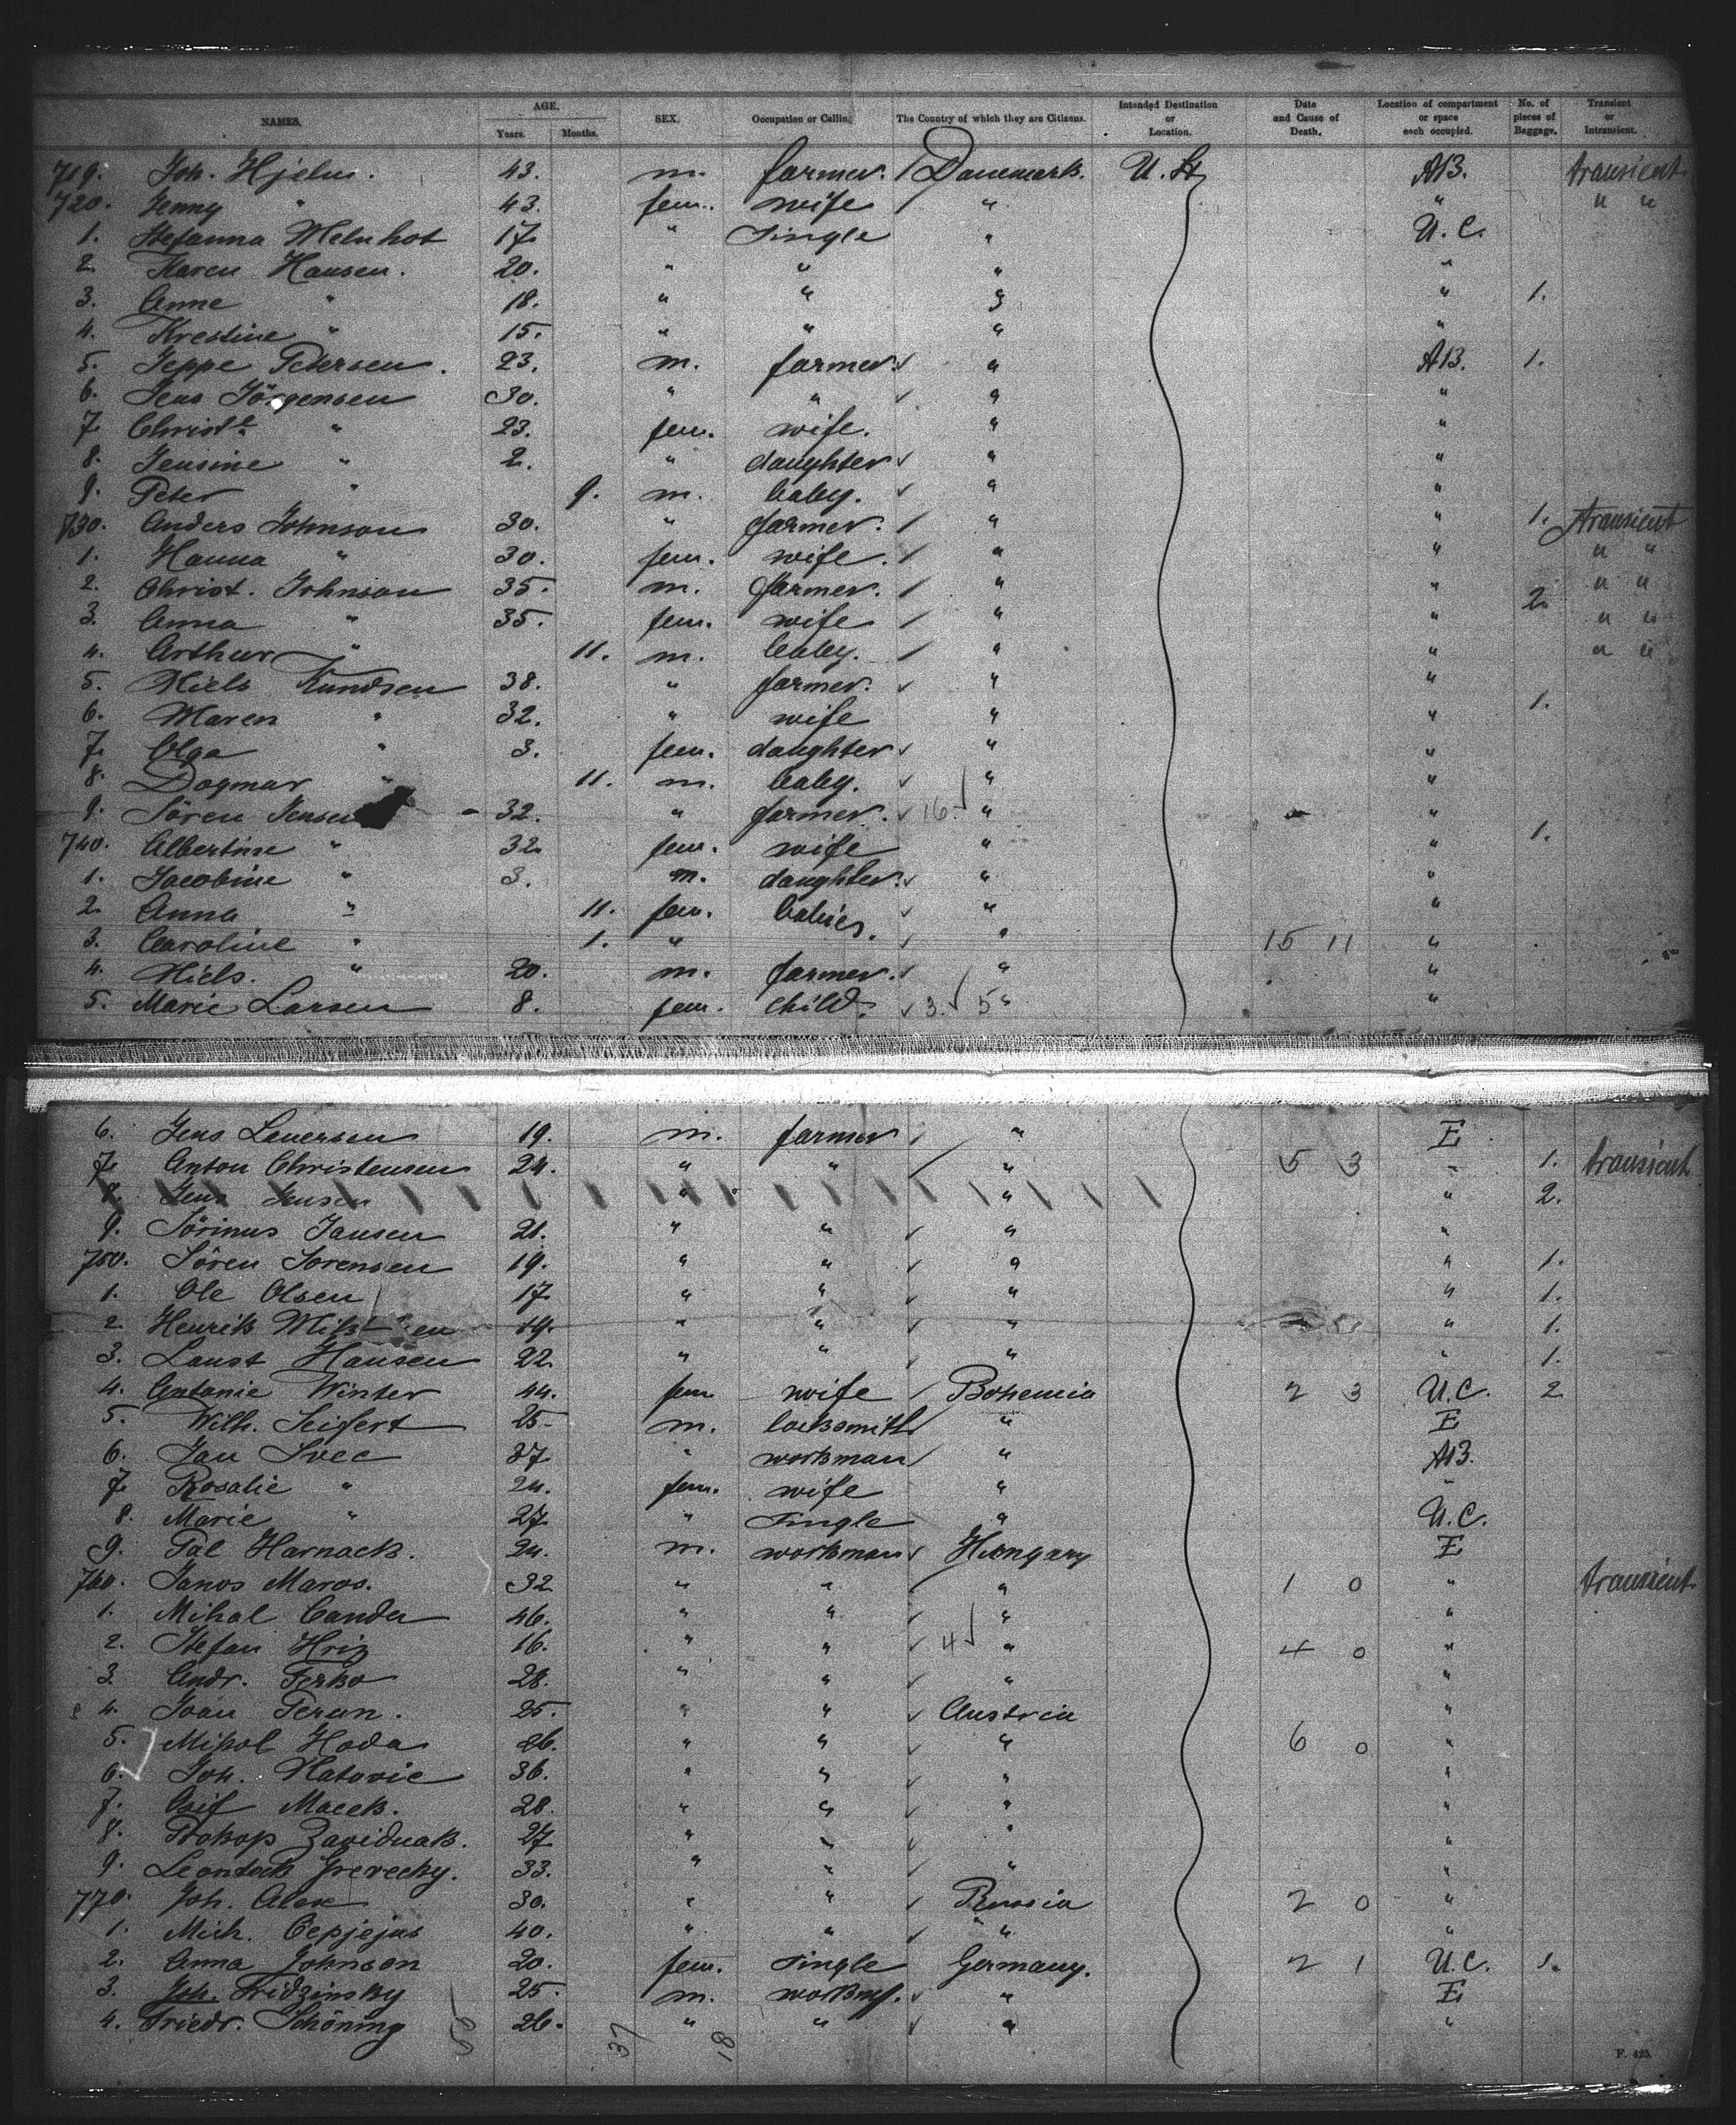 NAMES. AGE. Years. Months. SEX. Occupation or Calling. The Country of which they are Citizens. Intended Destination or Location. Date and Cause of Death. Location of compartment or space each occupied. No. of pieces of Baggage. Transient or Intransient.
719. Joh. Hjelm. 43. m. farmer. Danemark. U. St. AB. transient
720. Jenny " 43. fem. wife " " " "
1. Stefanna 17. " Single " U.C.
2. Karen Hansen. 20. " " " "
3. Anne " 18. " " " " 1.
4. Krestine " 15. " " " "
5. Jeppe Petersen. 23. m. farmer. " AB. 1.
6. Jens Jörgensen 30. " " " "
7. Christe " 23. fem. wife. " "
8. Jensine " 2. " daughter " "
9. Peter " 9. m. baby. " "
730. Anders Johnson 30. " farmer. " " 1. transient
1. Hanna " 30. fem. wife. " " " "
2. Christ. Johnson 35. m. farmer. " " 2. " "
3. Anna " 35. fem. wife " " " "
4. Arthur " 11. m. baby. " " " "
5. Niels Kundsen 38. " farmer. " "
6. Maren " 32. " wife " " 1.
7. Olga " 3. fem. daughter " "
8. Dogmar " 11. m. baby. " "
9. Sören Jensen 32. " farmer. 16. " "
740. Albertine " 32. fem. wife " " 1.
1. Jacobine " 3. m. daughter. " "
2. Anna " 11. fem. babies. " "
3. Caroline " 1. " " 15 11 "
4. Niels. " 20. m. farmer. " "
5. Marie Larsen 8. fem. child. 3. 5 " "
6. Jens Lauersen 19. m. farmer " E
7. Anton Christensen 24. " " " 5 3 " 1. transient
8. Jens Jensen " " " " 2.
9. Sörinus Jansen 21. " " " "
750. Sören Sorensen 19. " " " " 1.
1. Ole Olsen 17. " " " " 1.
2. Henrik 19. " " " " 1.
3. Laust Hansen 22. " " " " 1.
4. Antonie Winter 44. fem. wife Bohemia 2 3 U.C. 2
5. Wilh. Seifert 25. m. locksmith " E
6. Jan Svec 37. " workman " AB.
7. Rosalie " 24. fem. wife " "
8. Marie " 27. " Single " U.C.
9. Pal Harnack. 24. m. workman Hungary E
760. Janos Maros. 32. " " " 1 0 " transient
1. Mihal Canda 46. " " " "
2. Stefan Hriz 16. " " 4 " 4 0 "
3. Andr. Ferko 28. " " " "
4. Ivan Perun. 25. " " Austria "
5. Mikol Hoda 26. " " " 6 0 "
6. Joh. Hatovic 36. " " " "
7. Osif Macek. 28. " " " "
8. Prokop Zavidnak. 27. " " " "
9. 33. " " " "
770. Joh. Alex 30. " " Russia 2 0 "
1. Mich. Cepjejus 40. " " " "
2. Anna Johnson 20. fem. Single Germany. 2 1 U.C. 1.
3. Joh. Fridzinsky 25. m. workm. " E
4. Friedr. Schöning 26. " " " "
37 18
F. 425.